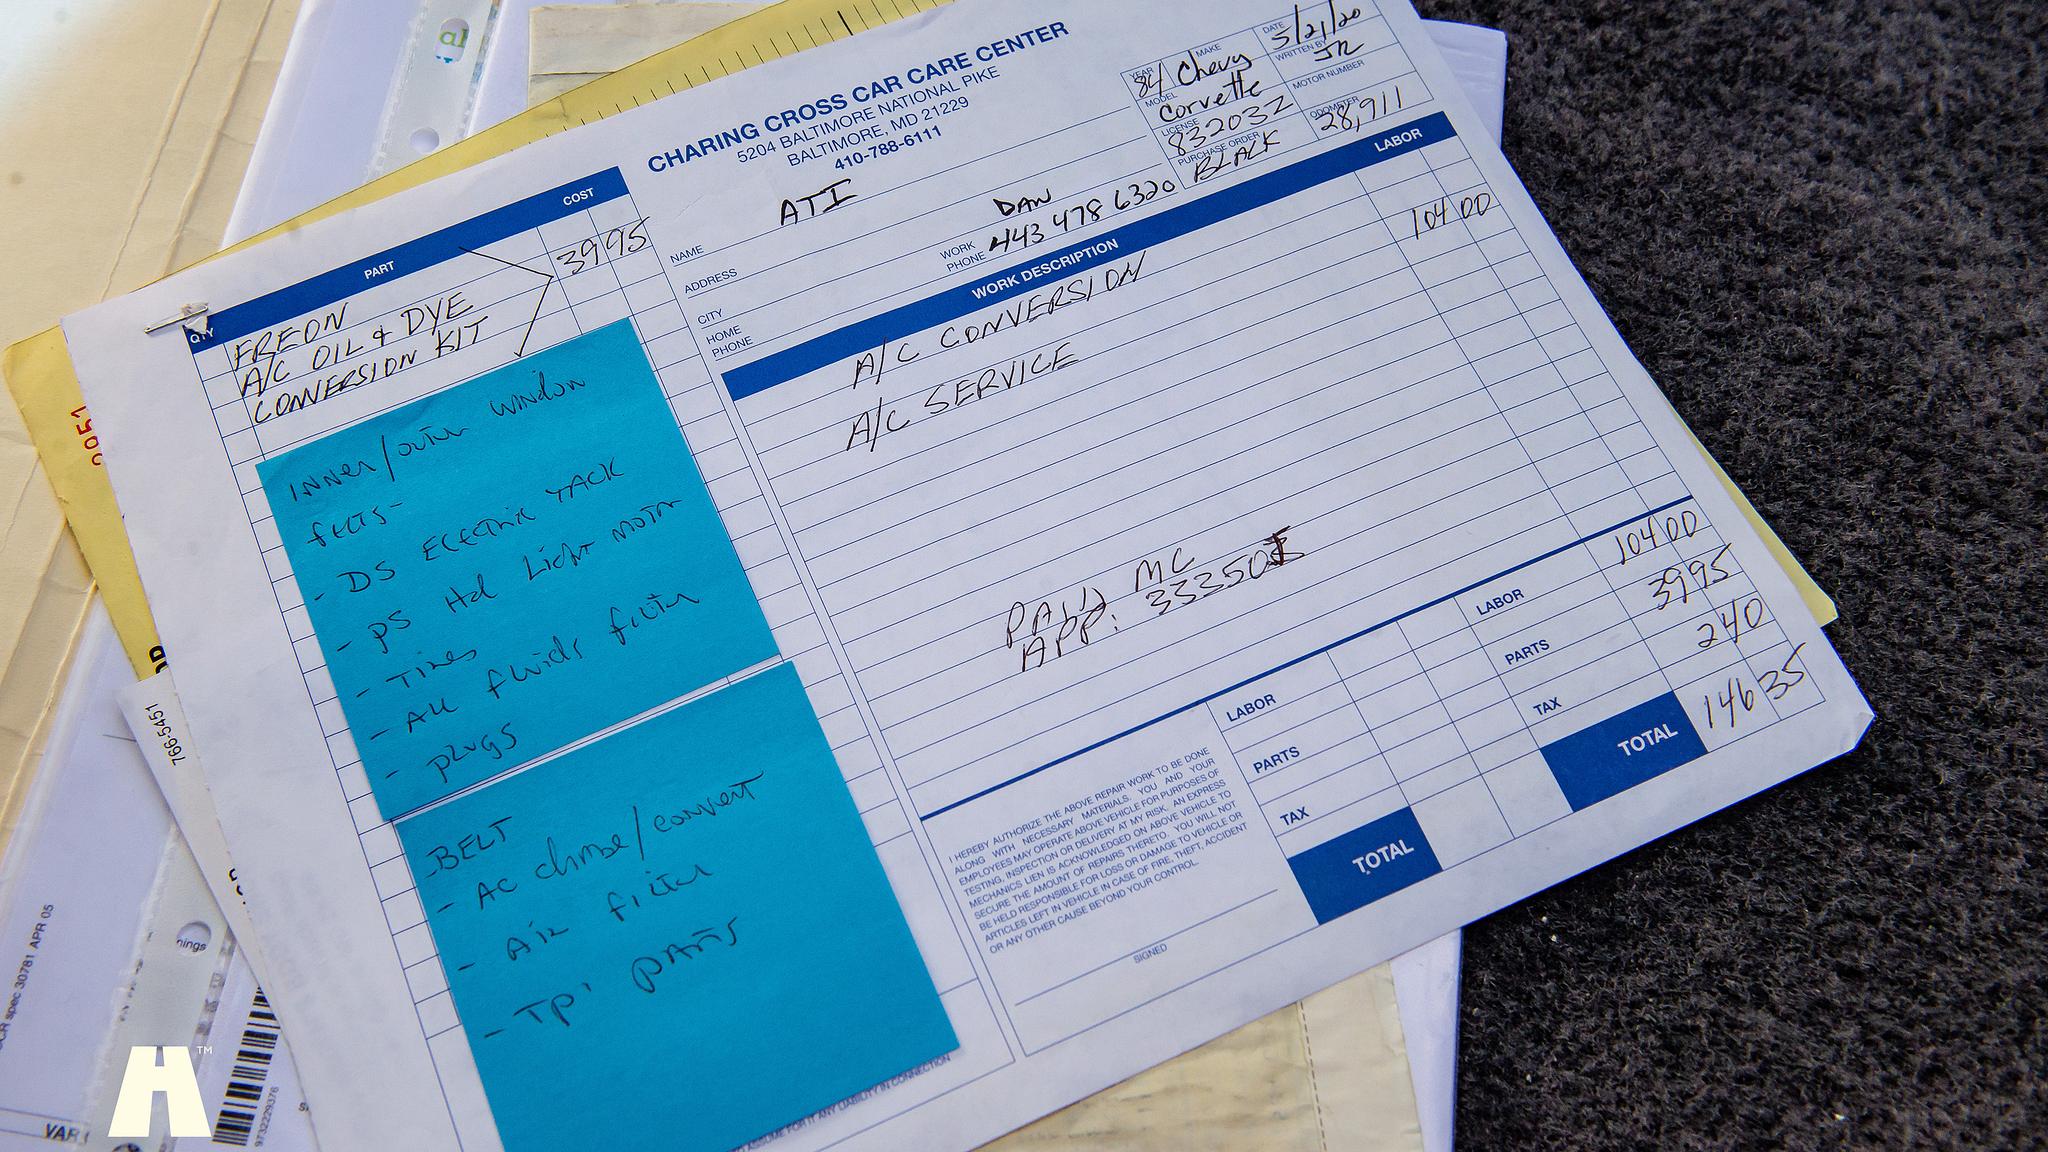 CHARING CROSS CAR CARE CENTER
5204 BALTIMORE NATIONAL PIKE
BALTIMORE, MD 21229
410-788-6111
YEAR MAKE DATE
84 Chevy 5/21/20
MODEL WRITTEN BY
Corvette JR
LICENSE MOTOR NUMBER
832032
PURCHASE ORDER ODOMETER
BLACK 28,911
NAME ATI
ADDRESS
CITY
HOME PHONE
DAN
WORK PHONE 443 478 6320
QTY PART COST
FREON
A/C OIL & DYE
CONVERSION KIT
39 95
WORK DESCRIPTION LABOR
A/C CONVERSION 104 00
A/C SERVICE
PAID MC
APP:
LABOR
PARTS
TAX
TOTAL
LABOR 104 00
PARTS 39 95
TAX 2 40
TOTAL 146 35
I HEREBY AUTHORIZE THE ABOVE REPAIR WORK TO BE DONE
ALONG WITH NECESSARY MATERIALS. YOU AND YOUR
EMPLOYEES MAY OPERATE ABOVE VEHICLE FOR PURPOSES OF
TESTING, INSPECTION OR DELIVERY AT MY RISK. AN EXPRESS
MECHANICS LIEN IS ACKNOWLEDGED ON ABOVE VEHICLE TO
SECURE THE AMOUNT OF REPAIRS THERETO. YOU WILL NOT
BE HELD RESPONSIBLE FOR LOSS OR DAMAGE TO VEHICLE OR
ARTICLES LEFT IN VEHICLE IN CASE OF FIRE, THEFT, ACCIDENT
OR ANY OTHER CAUSE BEYOND YOUR CONTROL.
SIGNED
INNER/outer window
felts-
- DS Electric
- PS Hd Light motor
- Tires
- All fluids filter
- plugs
- BELT
- AC /convert
- Air filter
- TPI PARTS
ASSUME FOR IT ANY LIABILITY IN CONNECTION
766-5451
spec 30781 APR 05
9732229376
VAR
nings
H™